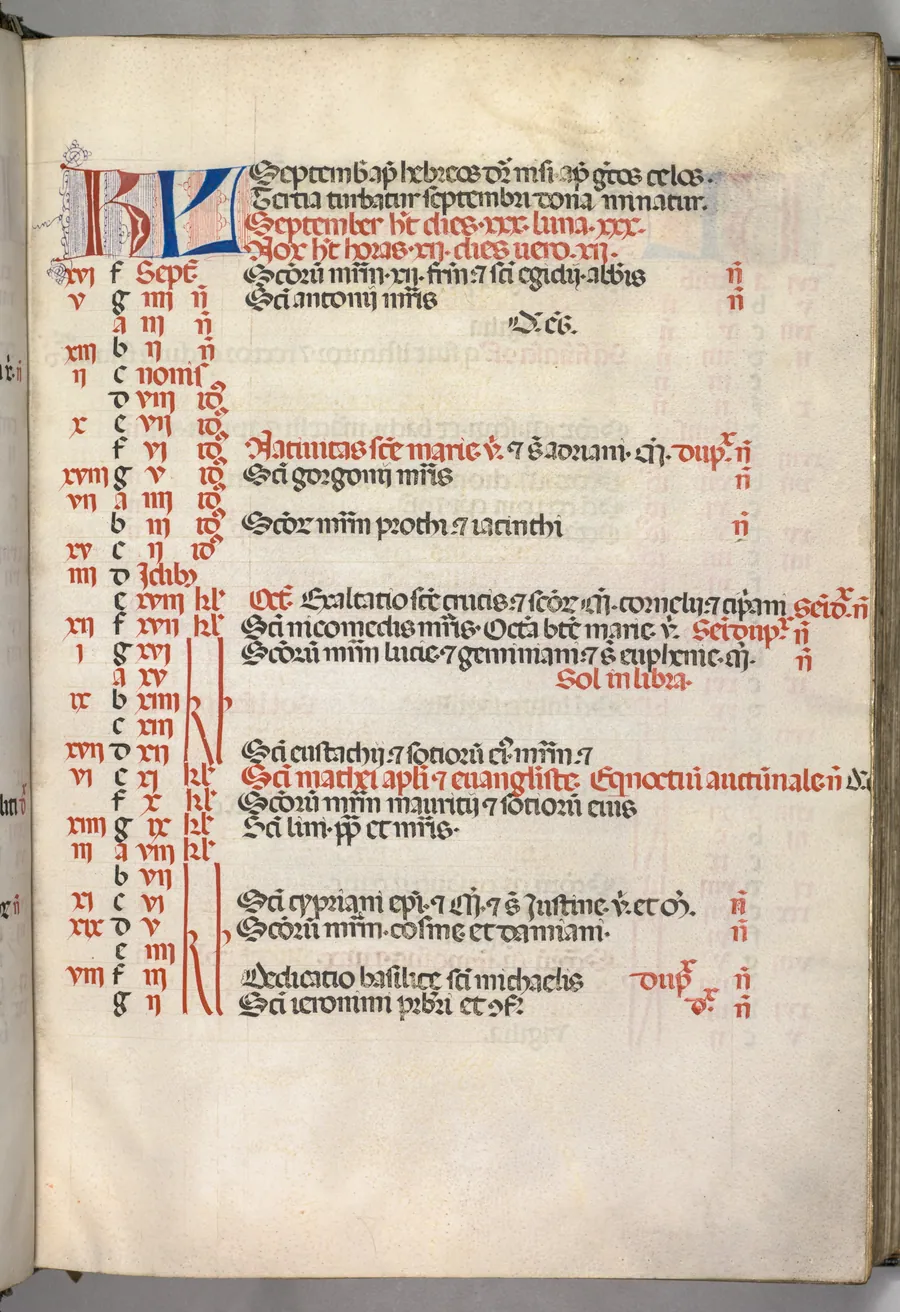 KL Septemb ap hebreos dr̄ nisi ap gr̄cos celos.
Tertia turbatur septembri dona minatur.
September ht dies·xxx·luna·xxx·
Nox ht horas·xii·dies uero·xii·
xvi f Sept̄ Scōrū mm̄·xii·frm̄ ⁊ sc̄i egidij·abbis n̄
v g iiii n̄ Sc̄i antonij mr̄is n̄
a iii n̄
xiii b ii n̄
ii c nonis
d viii id
x e vii id
f vi id Natiuitas sc̄e marie v̄· ⁊ s̄ adriani· m̄· dupx n̄
xviii g v id Sc̄i gorgonij mr̄is n̄
vii a iiii id
b iii id Scōr mm̄ prothi ⁊ iacinthi n̄
xv c ii id
iiii d Idibꝫ
e xviii kl Oct̄· Exaltatio sc̄e crucis·⁊ scōr m̄·cornelij·⁊ cip̄ani n̄
xii f xvii kl Sc̄i nicomedis mr̄is· Octa bt̄e marie·v̄· Semidupx n̄
i g xvi Scōrū mm̄ lucie·⁊ geminiani·⁊ s̄ euphemie·m̄· n̄
a xv kl Sol in libra·
ix b xiiii
c xiii
xvii d xii Sc̄i eustachij ⁊ sotiorū ei mm̄ ⁊
vi e xi kl Sc̄i mathei apl̄i ⁊ euangl̄iste· Eqnoctiū autūnale n̄
f x kl Scōrū mm̄ mauritij ⁊ sotiorū eius
xiiii g ix kl Sc̄i lini·pp̄ et mr̄is·
iii a viii kl
b vii
xi c vi Sc̄i cypriani epi·⁊ m̄·⁊ s̄ Justine·v̄·et m̄· n̄
xix d v kl Scōrū mm̄·cosme et damiani· n̄
e iiii
viii f iii Dedicatio basilice sc̄i michaelis dupx n̄
g ii Sc̄i ieronimi prb̄ri et ꝯf n̄